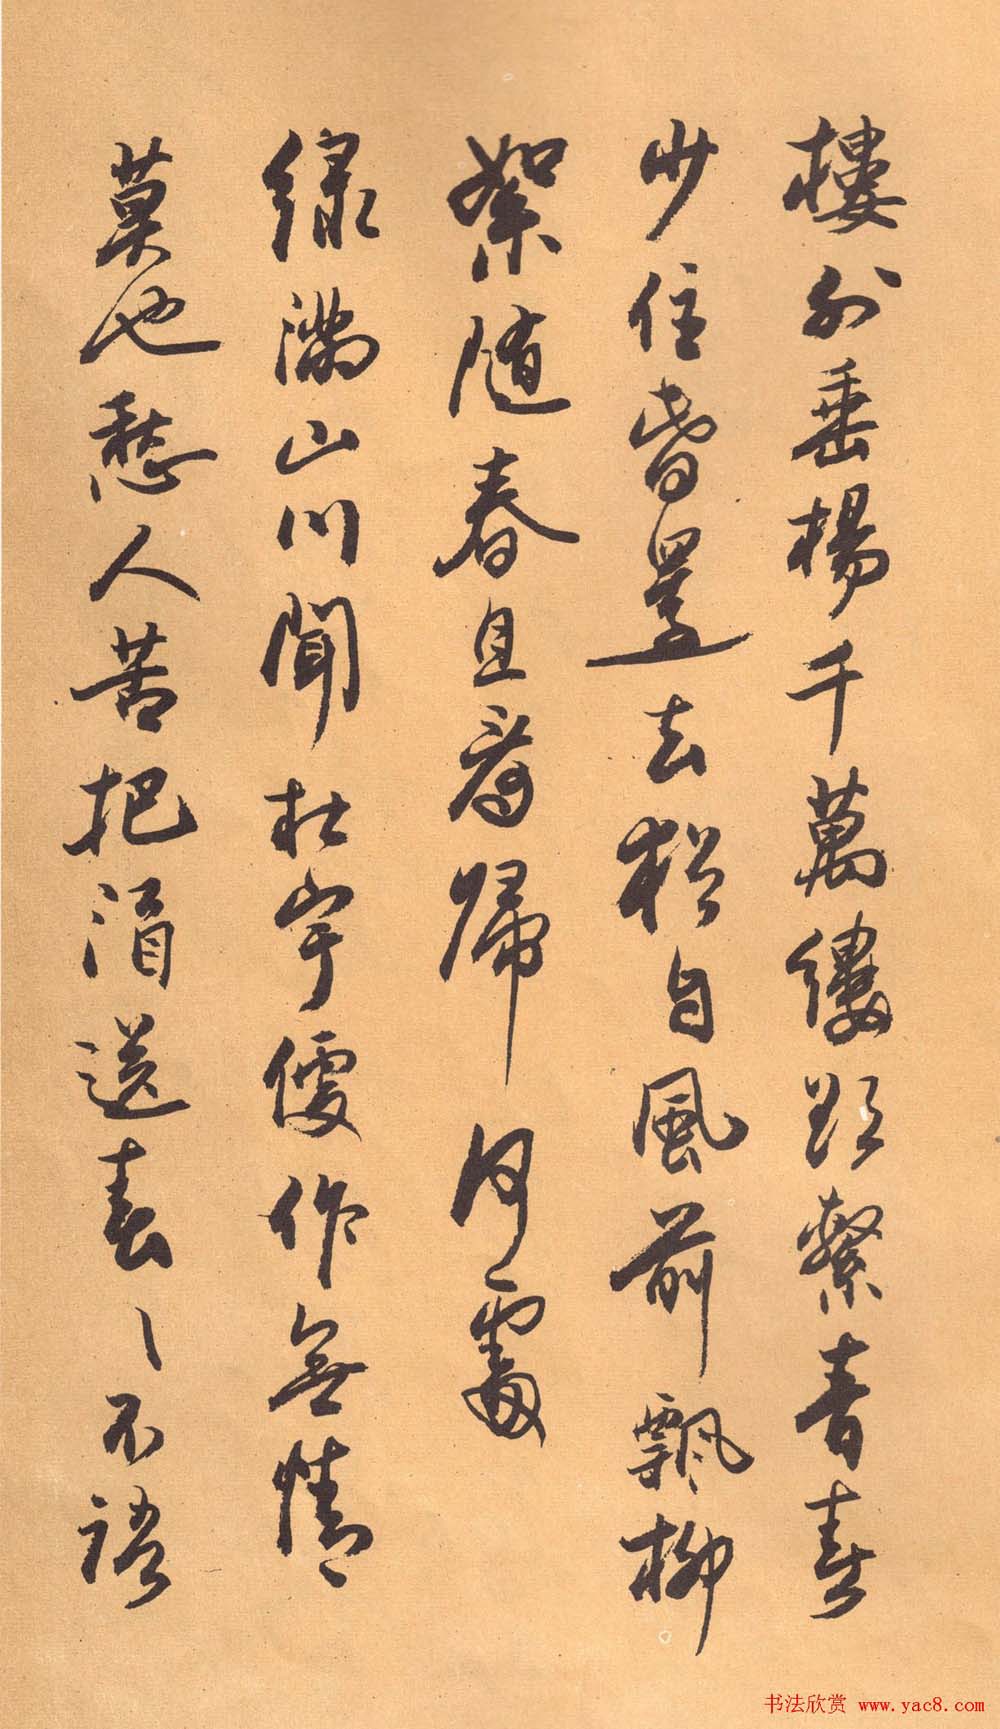 樓外垂楊千萬縷欲繫青春
少住旾還去猶自風前飄柳
絮随春且看歸何處
緑滿山川聞杜宇便作無情
莫也愁人苦把酒送春〻不語
书法欣赏 www.yac8.com